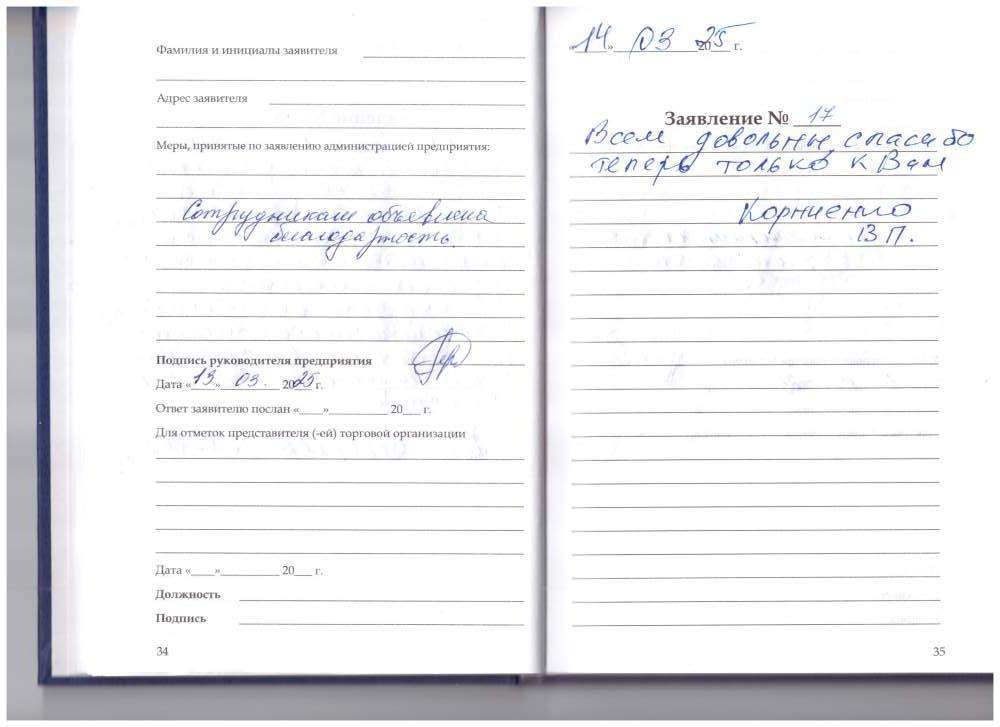 Фамилия и инициалы заявителя
Адрес заявителя
Меры, принятые по заявлению администрацией предприятия:
Сотрудникам объявлена
благодарность.
Подпись руководителя предприятия
Дата «13» 03. 2025 г.
Ответ заявителю послан «____»__________ 20___ г.
Для отметок представителя (-ей) торговой организации
Дата «____»__________ 20___ г.
Должность
Подпись
34
«14» 03 2025 г.
Заявление № 17
Всем довольны, спасибо
теперь только к Вам
Корниенко
В П.
35